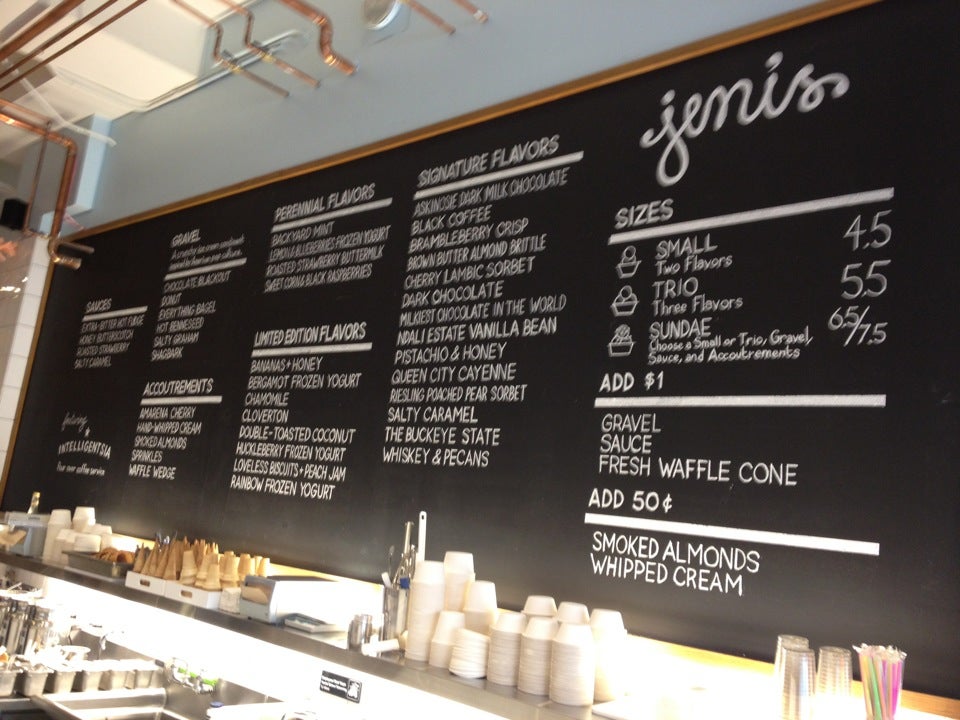 jenis
SAUCES
EXTRA-BITTER HOT FUDGE
HONEY BUTTERSCOTCH
ROASTED STRAWBERRY
SALTY CARAMEL
featuring
INTELLIGENTSIA
Pour over coffee service
GRAVEL
A crunchy ice cream condiment
CHOCOLATE BLACKOUT
DONUT
EVERYTHING BAGEL
HOT RENNESEED
SALTY GRAHAM
SHAGBARK
ACCOUTREMENTS
AMARENA CHERRY
HAND-WHIPPED CREAM
SMOKED ALMONDS
SPRINKLES
WAFFLE WEDGE
PERENNIAL FLAVORS
BACKYARD MINT
LEMON & BLUEBERRIES FROZEN YOGURT
ROASTED STRAWBERRY BUTTERMILK
SWEET CORN & BLACK RASPBERRIES
LIMITED EDITION FLAVORS
BANANAS + HONEY
BERGAMOT FROZEN YOGURT
CHAMOMILE
CLOVERTON
DOUBLE-TOASTED COCONUT
HUCKLEBERRY FROZEN YOGURT
LOVELESS BISCUITS + PEACH JAM
RAINBOW FROZEN YOGURT
SIGNATURE FLAVORS
ASKINOSIE DARK MILK CHOCOLATE
BLACK COFFEE
BRAMBLEBERRY CRISP
BROWN BUTTER ALMOND BRITTLE
CHERRY LAMBIC SORBET
DARK CHOCOLATE
MILKIEST CHOCOLATE IN THE WORLD
NDALI ESTATE VANILLA BEAN
PISTACHIO & HONEY
QUEEN CITY CAYENNE
RIESLING POACHED PEAR SORBET
SALTY CARAMEL
THE BUCKEYE STATE
WHISKEY & PECANS
SIZES
SMALL 4.5
Two Flavors
TRIO 5.5
Three Flavors
SUNDAE 6.5/7.5
Choose a Small or Trio, Gravel,
Sauce, and Accoutrements
ADD $1
GRAVEL
SAUCE
FRESH WAFFLE CONE
ADD 50¢
SMOKED ALMONDS
WHIPPED CREAM